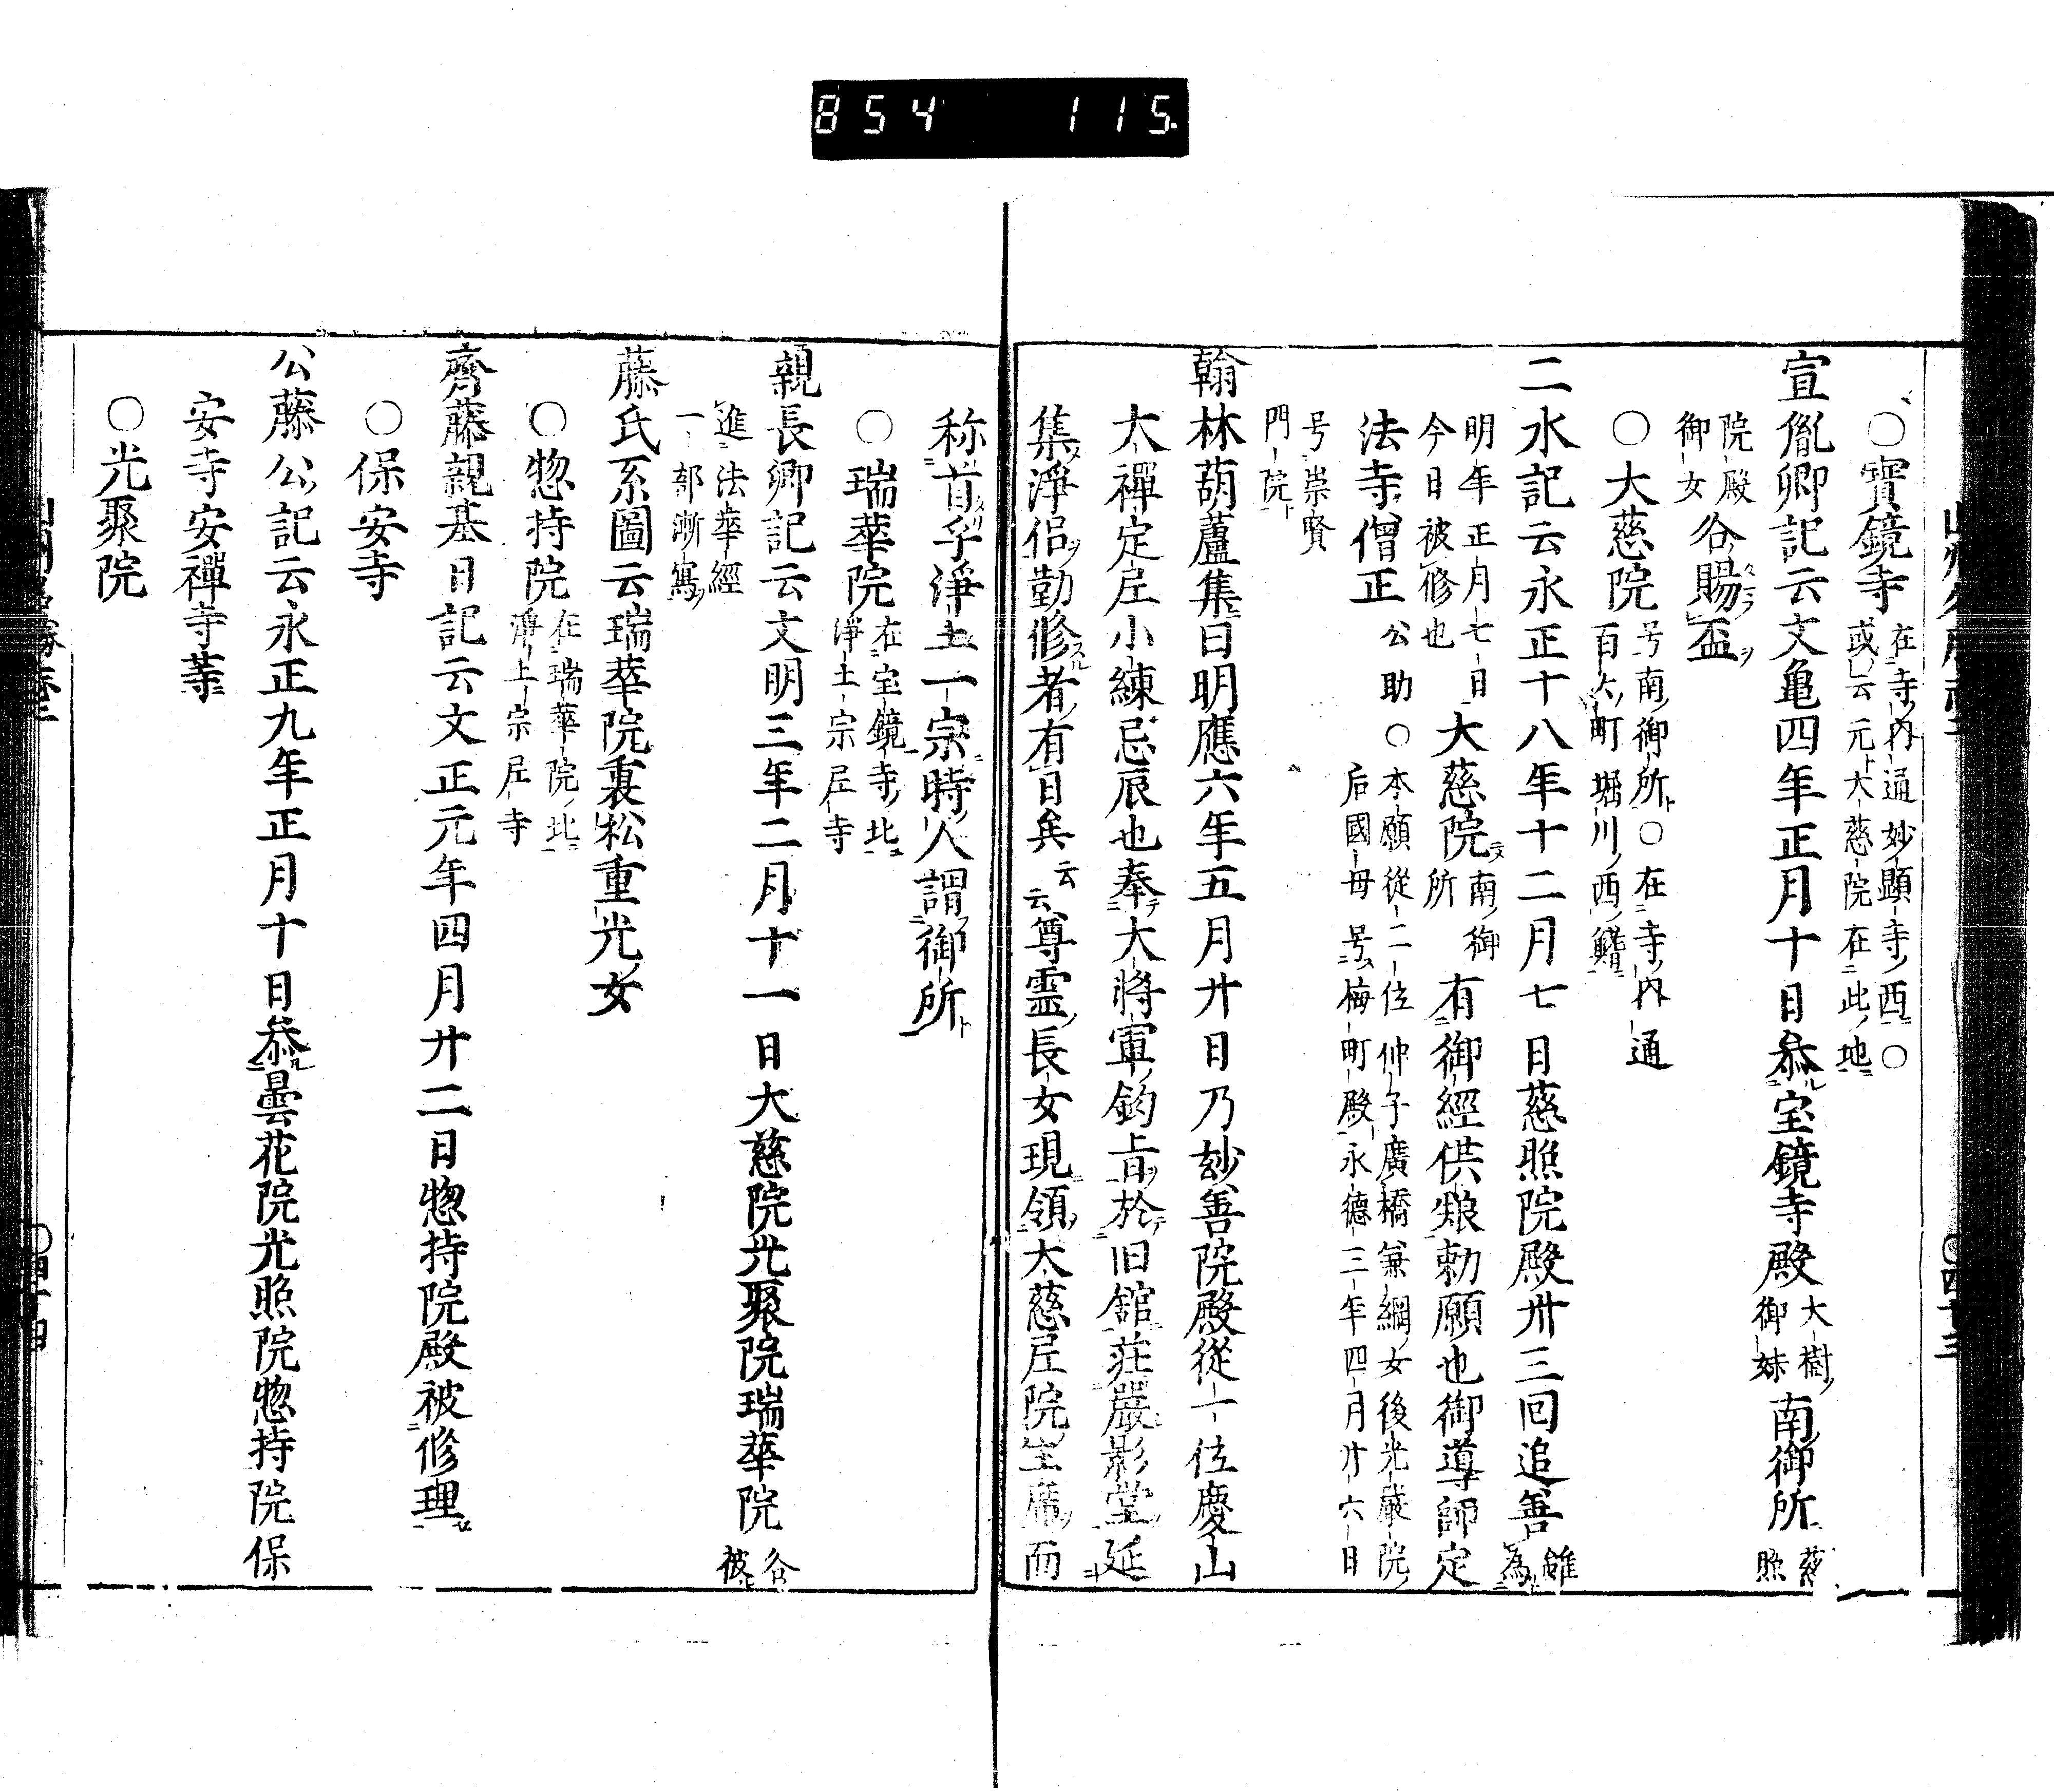 854 115
○寳鏡寺 在寺内通妙顯寺西○或云元大慈院在此地
宣胤卿記云文亀四年正月十日叅宝鏡寺殿 大樹御妹 南御所 慈照
院殿御女 各賜盃
○大慈院 号南御所○在寺内通百々町堀川西鰭
二水記云永正十八年十二月七日慈照院殿卅三回追善 雖為
明年正月七日今日被修也 大慈院 南御所 有御經供養勅願也御導師定
法寺僧正 公助○本願從二位仲子廣橋兼綱女後光嚴院后國母号梅町殿永德三年四月廿六日
号崇賢門院
翰林葫蘆集曰明應六年五月廿日乃妙善院殿從一位慶山
大禪定尼小練忌辰也奉大將軍鈞旨於旧舘莊嚴影堂延
集淨侶勤修者有日矣 云云 尊霊長女現領大慈尼院主席而
称首乎淨土一宗時人謂御所
○瑞華院 在宝鏡寺北淨土宗尼寺
親長卿記云文明三年二月十一日大慈院光聚院瑞華院 各被
進法華經一部漸寫
藤氏系圖云瑞華院裏松重光女
○惣持院 在瑞華院北淨土宗尼寺
齊藤親基日記云文正元年四月廿二日惣持院殿被修理
○保安寺
公藤公記云永正九年正月十日叅曇花院光照院惣持院保
安寺安禪寺等
○光聚院